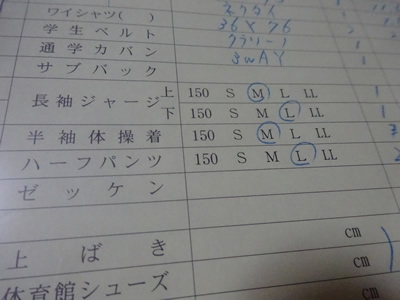 ワイシャツ( )
学生ベルト 36×76 1
通学カバン クラリーノ 1
サブバック 3WAY
長袖ジャージ 上 150 S M L LL 1
下 150 S M L LL 1
半袖体操着 150 S M L LL 3
ハーフパンツ 150 S M L LL 2
ゼッケン
上ばき cm
体育館シューズ cm